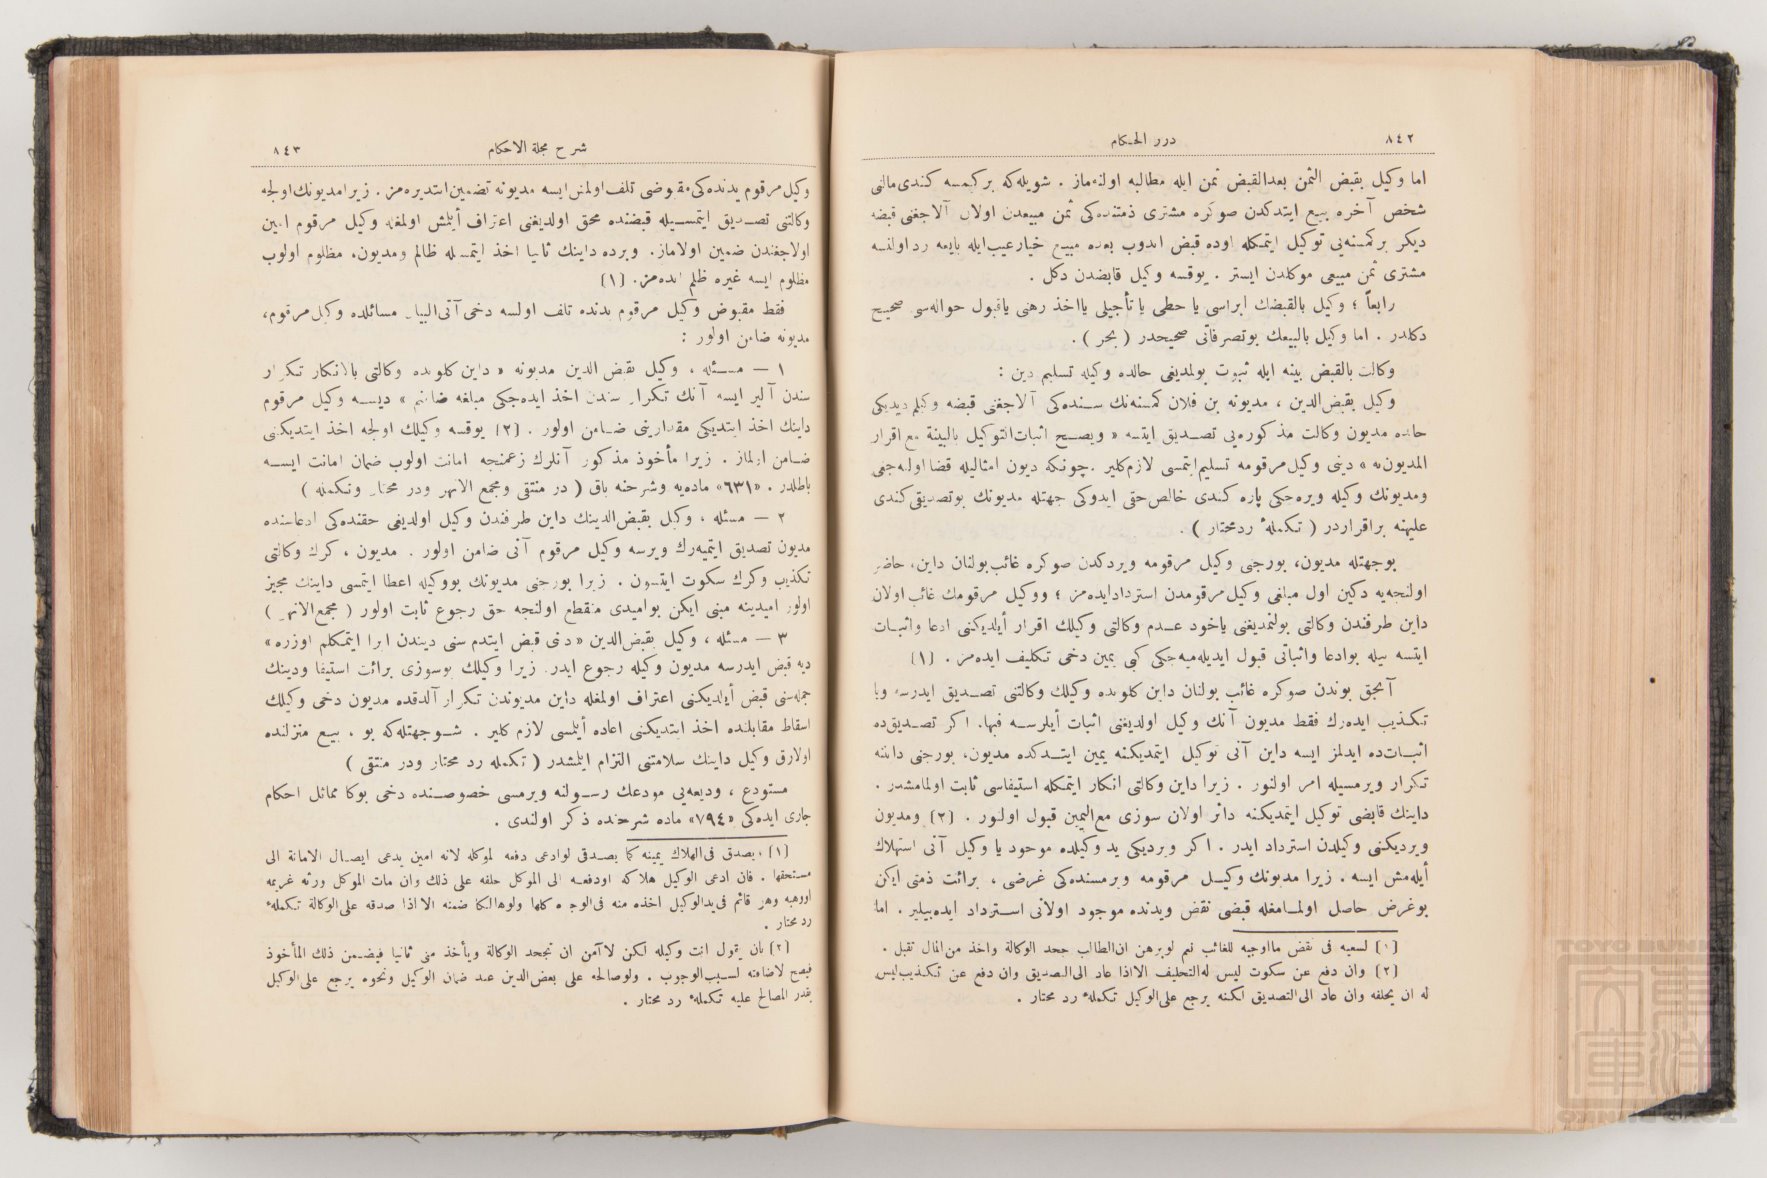 ٨٤٢
درر الحكام
اما وكيل بقبض الثمن بعدالقبض ثمن ايله مطالبه اولنه‌ماز . شويله‌كه بر كيمسه كندى مالنى
شخص آخره بيع ايتدكدن صوكره مشترى ذمتنده‌كى ثمن مبيعدن اولان آلاجغنى قبضه
ديكر بر كمسنه‌يى توكيل ايتمكله اوده قبض ايدوب بعده مبيع خيار عيب ايله بايعه رد اولنسه
مشترى ثمن مبيعى موكلدن ايستر . يوقسه وكيل قابضدن دكل .
رابعاً ؛ وكيل بالقبضك ابراسى يا حطى يا تأجيلى يا اخذ رهنى يا قبول حواله‌سى صحيح
دكلدر . اما وكيل بالبيعك بو تصرفاتى صحيحدر ( بحر ) .
وكالت بالقبض بينه ايله ثبوت بولمديغى حالده وكيله تسليم دين :
وكيل بقبض‌الدين ، مديونه بن فلان كمسنه‌نك سنده‌كى آلاجغنى قبضه وكيلم ديديكى
حالده مديون وكالت مذكوره‌يى تصديق ايتسه « ويصح اثبات‌التوكيل بالبينة مع اقرار
المديون به » دينى وكيل مرقومه تسليم ايتمسى لازم كلير . چونكه ديون امثاليله قضا اوله‌جغى
ومديونك وكيله ويره‌جكى پاره كندى خالص حقى ايدوكى جهتله مديونك بو تصديقى كندى
عليهنه بر اقراردر ( تكملهٔ ردمحتار ) .
بوجهتله مديون، بورجنى وكيل مرقومه ويردكدن صوكره غائب بولنان داين، حاضر
اولنجه‌يه دكين اول مبلغى وكيل مرقومدن استرداد ايده‌مز ؛ ووكيل مرقومك غائب اولان
داين طرفندن وكالتى بولنمديغنى ياخود عدم وكالتى وكيلك اقرار أيلديكنى ادعا واثبات
ايتسه بيله بو ادعا واثباتى قبول ايديله‌ميه‌جكى كبى يمين دخى تكليف ايده‌مز . (١)
آنجق بوندن صوكره غائب بولنان داين كلوبده وكيلك وكالتنى تصديق ايدرسه ويا
تكذيب ايده‌رك فقط مديون آنك وكيل اولديغنى اثبات أيلرسه فبها. اكر تصديق‌ده
اثبات‌ده ايدلمز ايسه داين آنى توكيل ايتمديكنه يمين ايتدكده مديون، بورجنى داينه
تكرار ويرمسيله امر اولنور . زيرا داين وكالتى انكار ايتمكله استيفاسى ثابت اولمامشدر .
داينك قابضى توكيل ايتمديكنه دائر اولان سوزى مع‌اليمين قبول اولنور . (٢) ومديون
ويرديكنى وكيلدن استرداد ايدر . اكر ويرديكى يد وكيلده موجود يا وكيل آنى استهلاك
أيله‌مش ايسه . زيرا مديونك وكيل مرقومه ويرمسنده‌كى غرضى ، برائت ذمتى ايكن
بو غرض حاصل اولمامغله قبضى نقض ويدنده موجود اولانى استرداد ايده‌بيلير . اما
(١) لسعيه فى نقض مااوجبه للغائب نعم لوبرهن ان‌الطالب جحد الوكالة واخذ من‌المال تقبل .
(٢) وان دفع عن سكوت ليس له‌التحليف الا اذا عاد الى‌التصديق وان دفع عن تكذيب ليس
له ان يحلفه وان عاد الى‌التصديق لكنه يرجع على‌الوكيل تكملهٔ رد محتار .
شرح مجلة الاحكام
٨٤٣
وكيل مرقوم يدنده‌كى مقبوضى تلف اولمش ايسه مديونه تضمين ايتديره‌مز . زيرا مديونك اولجه
وكالتى تصديق ايتمسيله قبضنده محق اولديغنى اعتراف أيلمش اولمغله وكيل مرقوم امين
اولاجغندن ضمين اولاماز. وبرده داينك ثانيا اخذ ايتمسيله ظالم ومديون، مظلوم اولوب
مظلوم ايسه غيره ظلم ايده‌مز. (١)
فقط مقبوض وكيل مرقوم يدنده تلف اولسه دخى آتى‌البيان مسائلده وكيل مرقوم،
مديونه ضامن اولور :
١ — مسئله ، وكيل بقبض الدين مديونه « داين كلوبده وكالتى بالانكار تكرار
سندن آلير ايسه آنك تكرار سندن اخذ ايده‌جكى مبلغه ضامنم » ديسه وكيل مرقوم
داينك اخذ ايتديكى مقدارينى ضامن اولور . (٢) يوقسه وكيلك اولجه اخذ ايتديكنى
ضامن اولماز . زيرا مأخوذ مذكور آنلرك زعمنجه امانت اولوب ضمان امانت ايسه
باطلدر . «٦٣١» ماده‌يه وشرحنه باق ( در منتقى ومجمع الانهر ودر محتار وتكمله )
٢ — مسئله ، وكيل بقبض‌الدينك داين طرفندن وكيل اولديغى حقنده‌كى ادعاسنده
مديون تصديق ايتميه‌رك ويرسه وكيل مرقوم آنى ضامن اولور . مديون ، كرك وكالتى
تكذيب وكرك سكوت ايتسون . زيرا بورجنى مديونك بو وكيله اعطا ايتمسى داينك مجيز
اولور اميدينه مبنى ايكن بو اميدى منقطع اولنجه حق رجوع ثابت اولور ( مجمع‌الانهر )
٣ — مسئله ، وكيل بقبض‌الدين « دنى قبض ايتدم سنى ديندن ابرا ايتمكلم اوزره »
ديه قبض ايدرسه مديون وكيله رجوع ايدر. زيرا وكيلك بو سوزى برائت استيفا ودينك
جمله‌سنى قبض أيلديكنى اعتراف اولمغله داين مديوندن تكرار آلدقده مديون دخى وكيلك
اسقاط مقابلنده اخذ ايتديكنى اعاده أيلمسى لازم كلير . شو جهتله‌كه بو ، بيع منزلنده
اولارق وكيل داينك سلامتنى التزام ايلمشدر ( تكمله رد محتار ودر منتقى )
مستودع ، وديعه‌يى مودعك رسولنه ويرمسى خصوصنده دخى بوكا مماثل احكام
جارى ايده‌كى «٧٩٤» ماده شرحنده ذكر اولندى .
(١) ، يصدق فى‌الهلاك بيمينه كما يصدق لوادعى دفعه لموكله لانه امين يدعى ايصال الامانة الى
مستحقها . فان ادعى الوكيل هلاكه اودفعه الى الموكل حلفه على ذلك وان مات الموكل ورثه غريمه
اووهبه وهو قائم فى يدالوكيل اخذه منه فى‌الوجوه كلها ولوهالكا ضمنه الا اذا صدقه على‌الوكالة تكملهٔ
رد محتار .
(٢) بان يقول انت وكيله لكن لاآمن ان تجحد الوكالة ويأخذ منى ثانيا فيضمن ذلك المأخوذ
فيصح لاضافته لسبب‌الوجوب . ولوصالحه على بعض‌الدين عند ضمان الوكيل ونحوه يرجع على‌الوكيل
بقدر المصالح عليه تكملهٔ رد محتار .
TOYO BUNKO